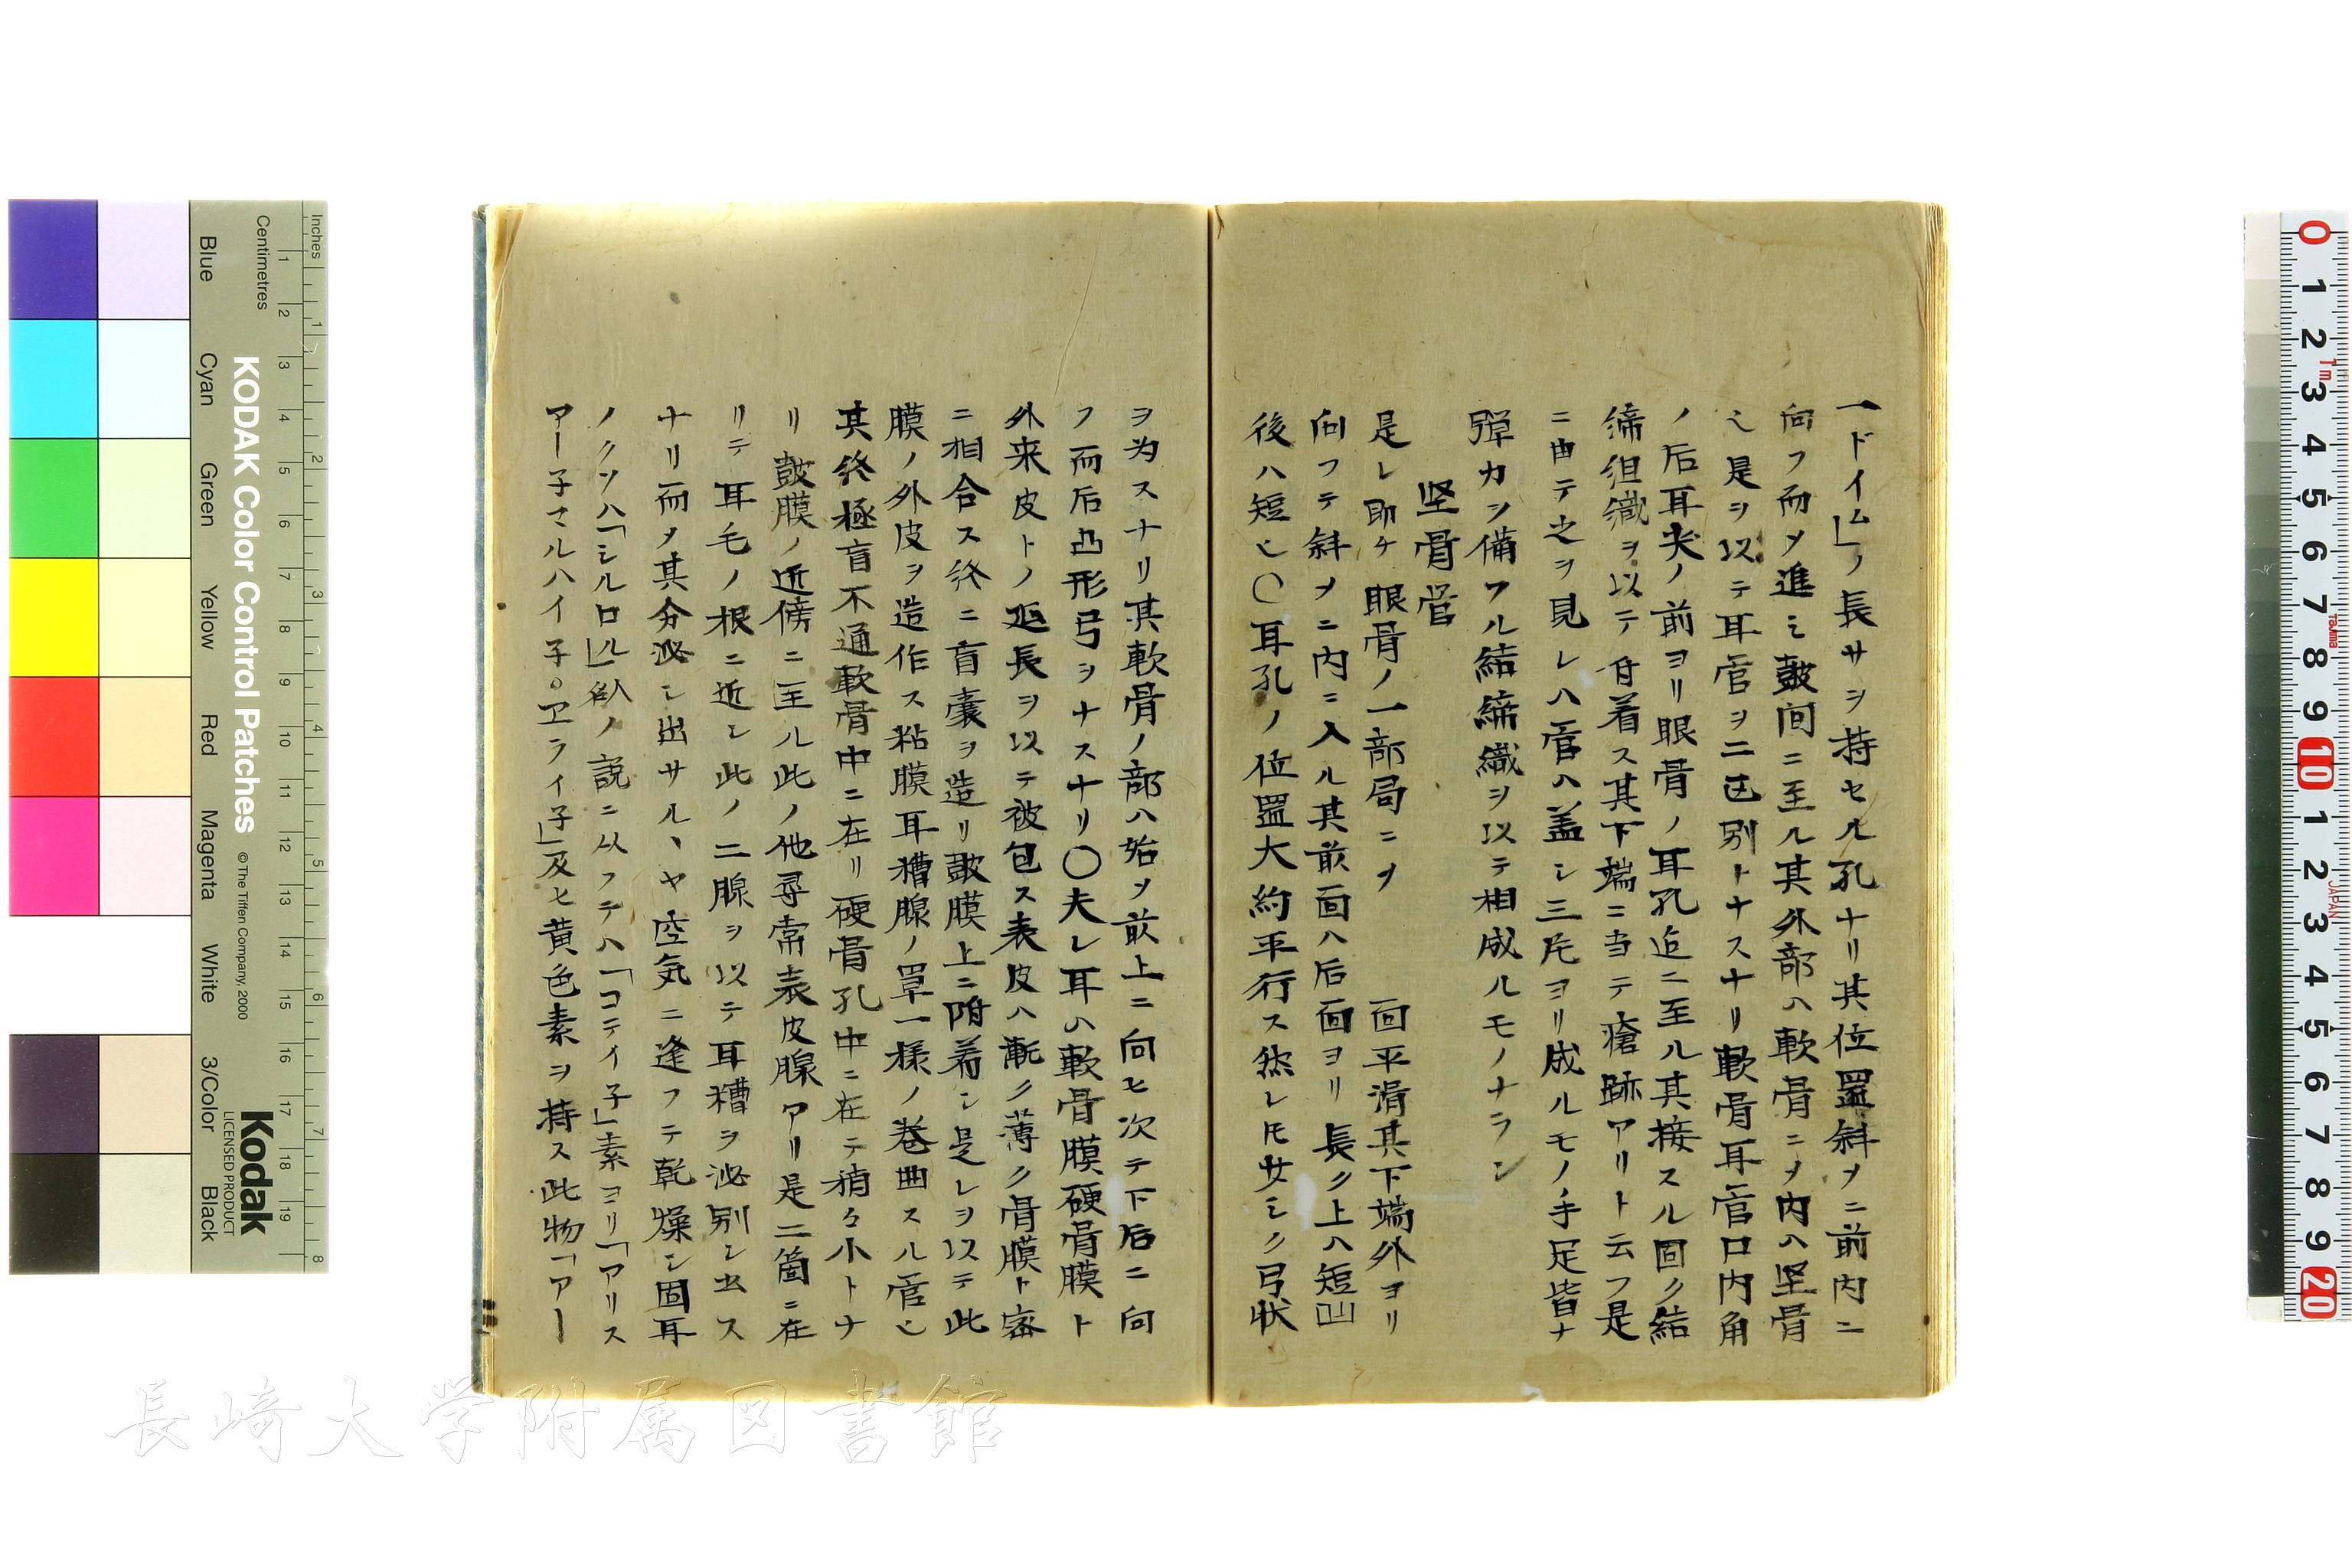 一ドイム」ノ長サヲ持セル孔ナリ其位置斜メニ前内ニ
向フ而メ進ミ皷間ニ至ル其外部ハ軟骨ニメ内ハ坚骨
ミ是ヲ以テ耳官ヲ二区別トナスナリ軟骨耳官口内角
ノ后耳尖ノ前ヨリ眼骨ノ耳孔迠ニ至ル其接スル固ク結
締组織ヲ以テ付着ス其下端ニ当テ瘡跡アリト云フ是
ニ由テ之ヲ見レハ官ハ盖シ三片ヨリ成ルモノ手足皆ナ
弾力ヲ備フル結締織ヲ以テ相成ルモノナラン
坚骨管
是レ即ケ眼骨ノ一部局ニヲ 面平滑其下端外ヨリ
向フテ斜メニ内ニ入ル其前面ハ后面ヨリ長ク上ハ短凹
後ハ短シ〇耳孔ノ位置大約平行ス然レ𪜈少シク弓状
ヲ为スナリ其軟骨ノ部ハ始メ前上ニ向ヒ次テ下后ニ向
フ而后凸形弓ヲナスナリ〇夫レ耳ハ軟骨膜硬骨膜ト
外来皮トノ延長ヲ以テ被包ス表皮ハ漸ク薄ク骨膜ト密
ニ相合ス終ニ盲嚢ヲ造リ皷膜上ニ附着シ是レヲ以テ此
膜ノ外皮ヲ造作ス粘膜耳糟腺ノ罩一様ノ巻曲スル官シ
其終極盲不通軟骨中ニ在リ硬骨孔中ニ在テ稍々小トナ
リ皷膜ノ近傍ニ至ル此ノ他尋常表皮腺アリ是二箇ニ在
リテ耳毛ノ根ニ近シ此ノ二腺ヲ以テ耳糟ヲ泌别シ出ス
ナリ而メ其分泌シ出サルヽヤ空気ニ逢フテ乾燥シ固耳
ノクソハ「シルロル」臥ノ説ニ从フテハ「コテイ子」素ヨリ「アリス
アー子マルハイ子。ヱライ子」及ヒ黄色素ヲ持ス此物「アー
Inches
Centimetres
1 2 3 4 5 6 7 8 9 10 11 12 13 14 15 16 17 18 19
1 2 3 4 5 6 7 8
KODAK Color Control Patches
© The Tiffen Company, 2000
Kodak
LICENSED PRODUCT
Blue
Cyan
Green
Yellow
Red
Magenta
White
3/Color
Black
0 1 2 3 4 5 6 7 8 9 10 1 2 3 4 5 6 7 8 9 20
1m
Tajima
JAPAN
長崎大学附属図書館